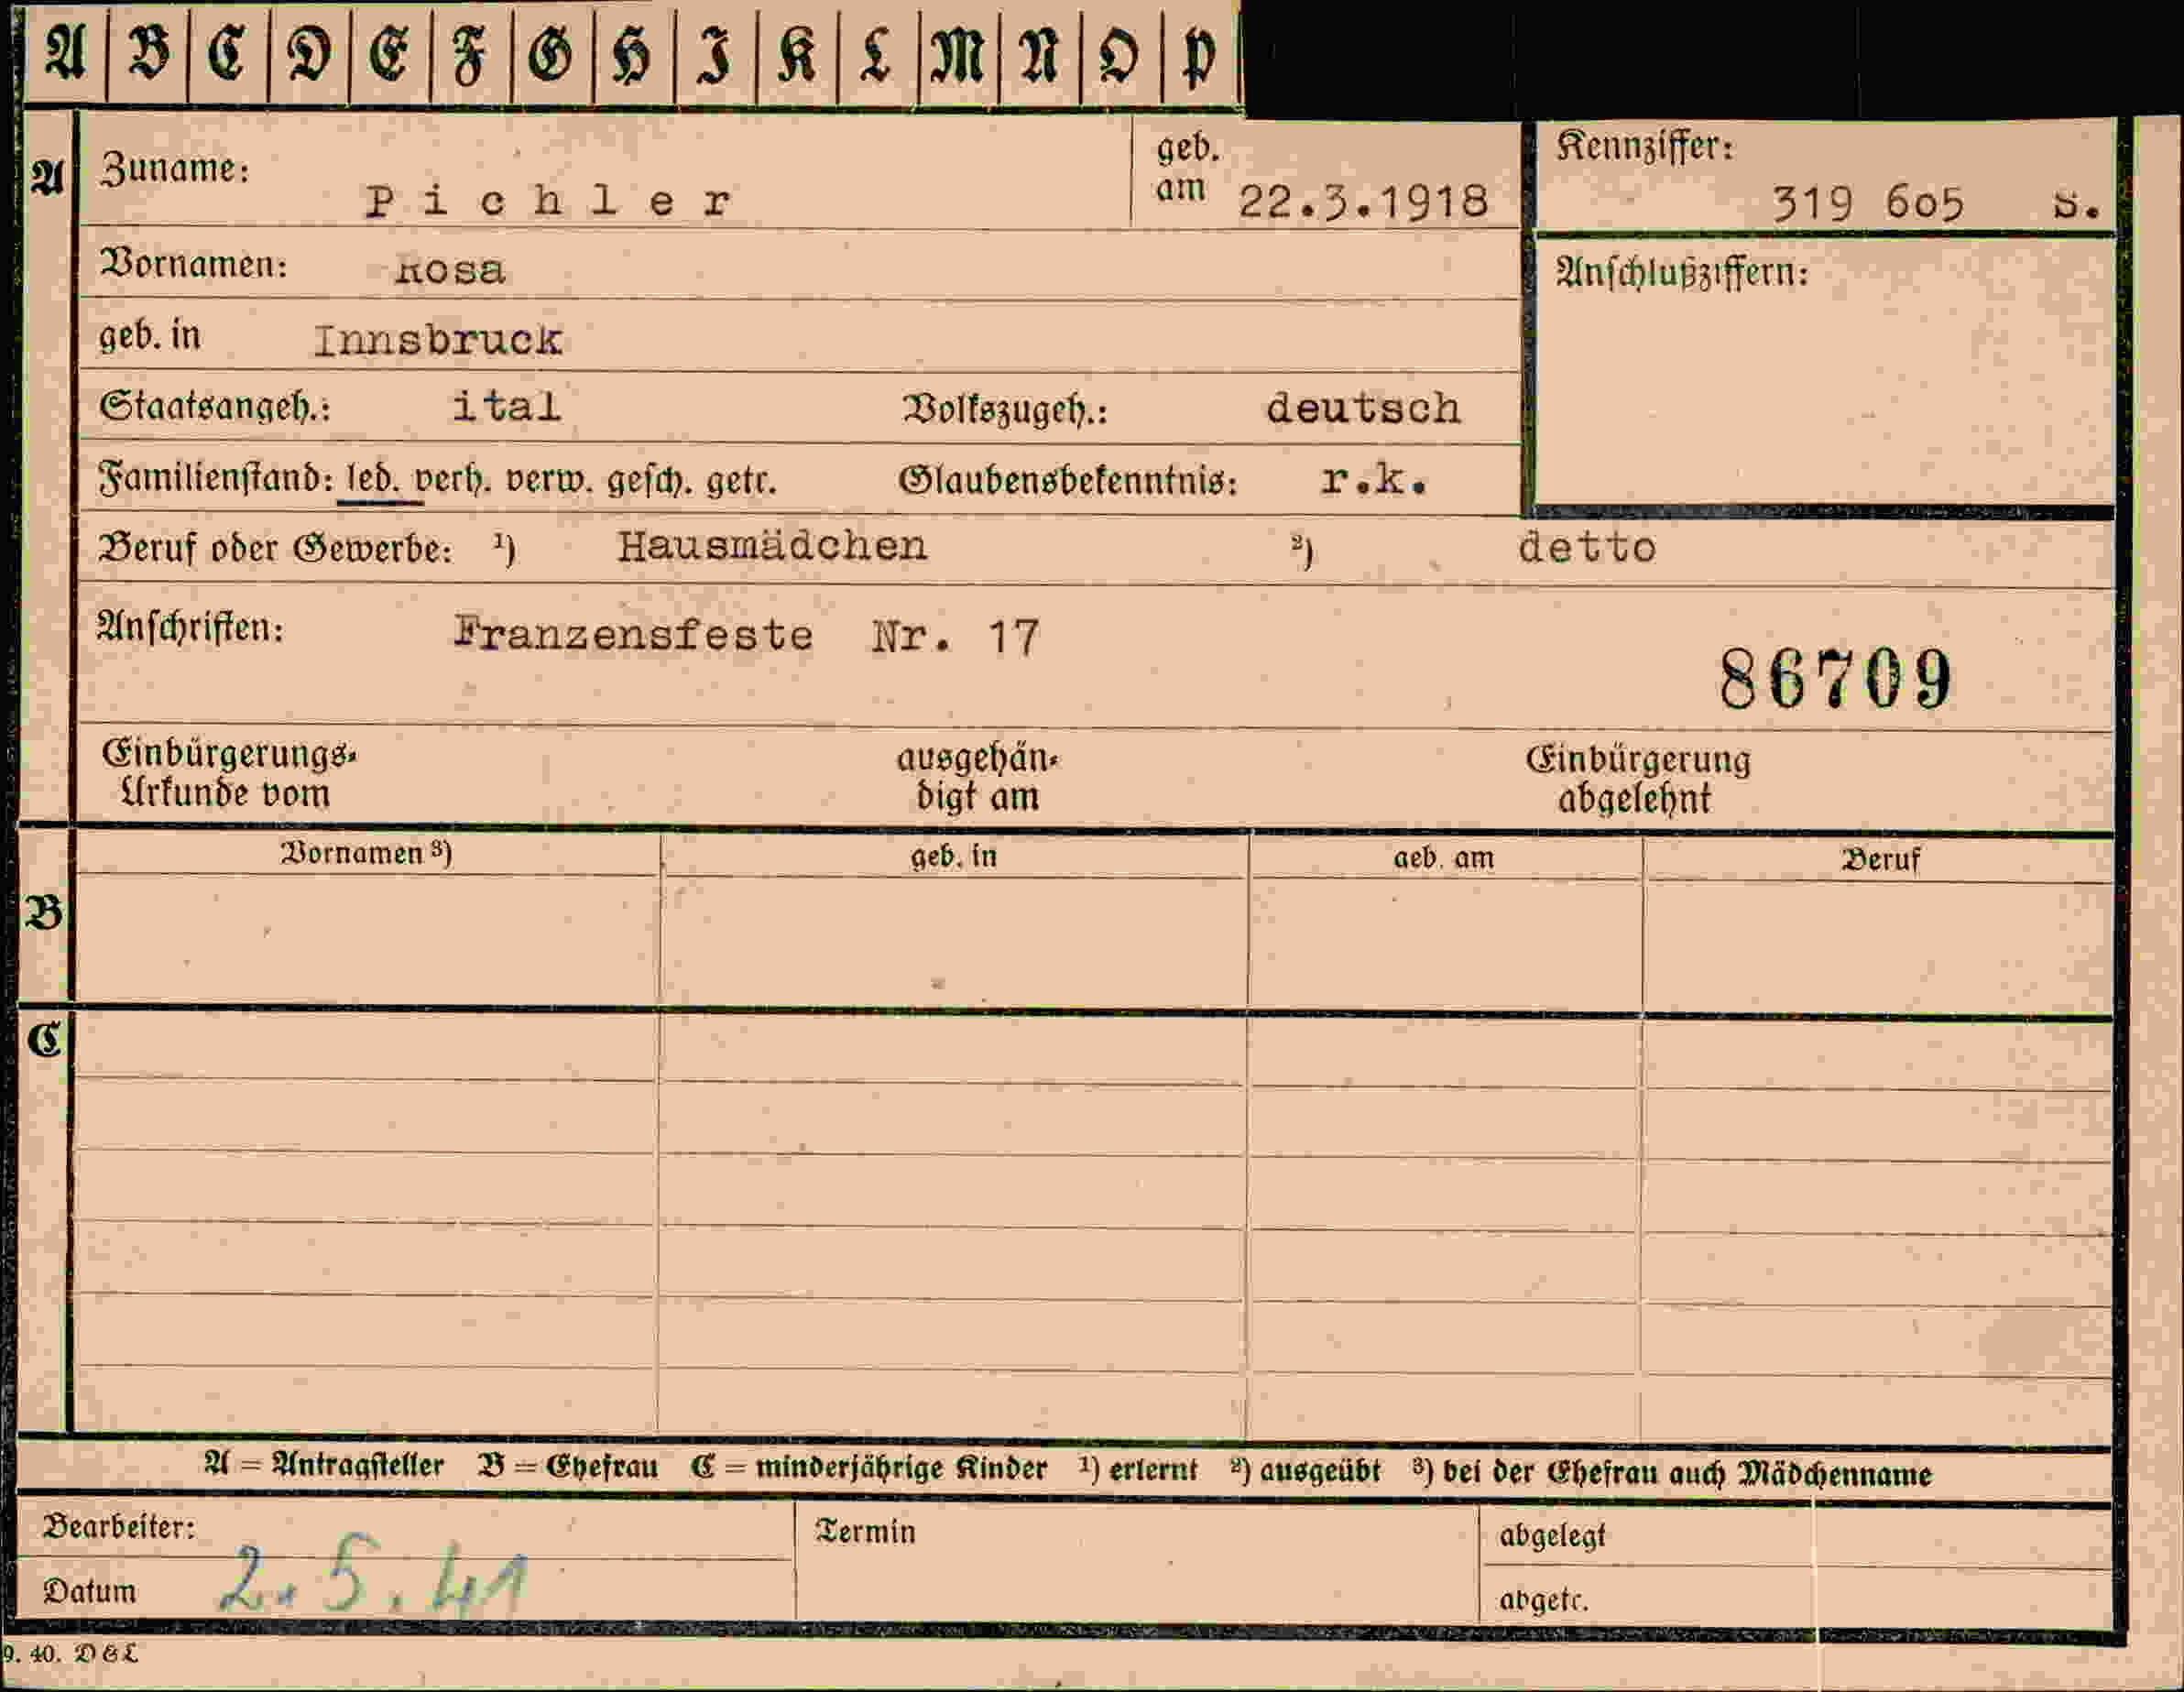 A | B | C | D | E | F | G | H | I | K | L | M | N | O | P
A Zuname: Pichler geb. am 22.3.1918 Kennziffer: 319 605 S.
Vornamen: Rosa Anschlußziffern:
geb. in Innsbruck
Staatsangeh.: ital Volkszugeh.: deutsch
Familienstand: led. verh. verw. gesch. getr. Glaubensbekenntnis: r.k.
Beruf oder Gewerbe: ¹) Hausmädchen ²) detto
Anschriften: Franzensfeste Nr. 17
86709
Einbürgerungs- ausgehän- Einbürgerung
Urkunde vom digt am abgelehnt
Vornamen ³) geb. in geb. am Beruf
B
C
A = Antragsteller B = Ehefrau C = minderjährige Kinder ¹) erlernt ²) ausgeübt ³) bei der Ehefrau auch Mädchenname
Bearbeiter: Termin abgelegt
Datum 2.5.41 abgetr.
9. 40. D&L